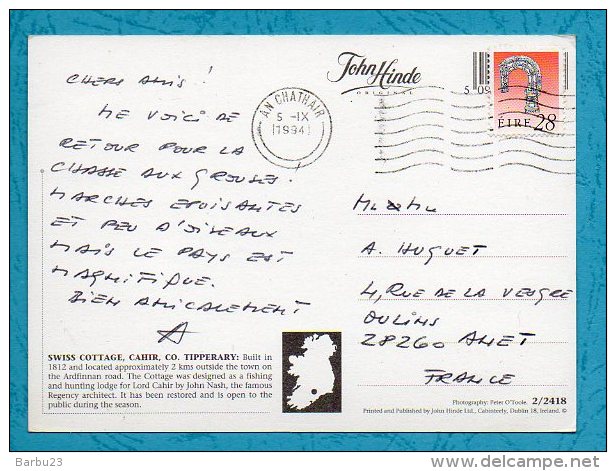 CHERS AMIS !
ME VOICI DE
RETOUR POUR LA
CHASSE AUX GROUSES.
MARCHES EPUISANTES
ET PEU D'OISEAUX
MAIS LE PAYS EST
MAGNIFIQUE.
BIEN AMICALEMENT
SWISS COTTAGE, CAHIR, CO. TIPPERARY: Built in
1812 and located approximately 2 kms outside the town on
the Ardfinnan road. The Cottage was designed as a fishing
and hunting lodge for Lord Cahir by John Nash, the famous
Regency architect. It has been restored and is open to the
public during the season.
John Hinde
ORIGINAL
AN CHATHAIR
5 -IX
1994
5 09
ÉIRE 28
A. HUGUET
4, RUE DE LA VESGRE
OULINS
28260 ANET
FRANCE
Photography: Peter O'Toole. 2/2418
Printed and Published by John Hinde Ltd., Cabinteely, Dublin 18, Ireland. ©
Barbu23
delcampe.net